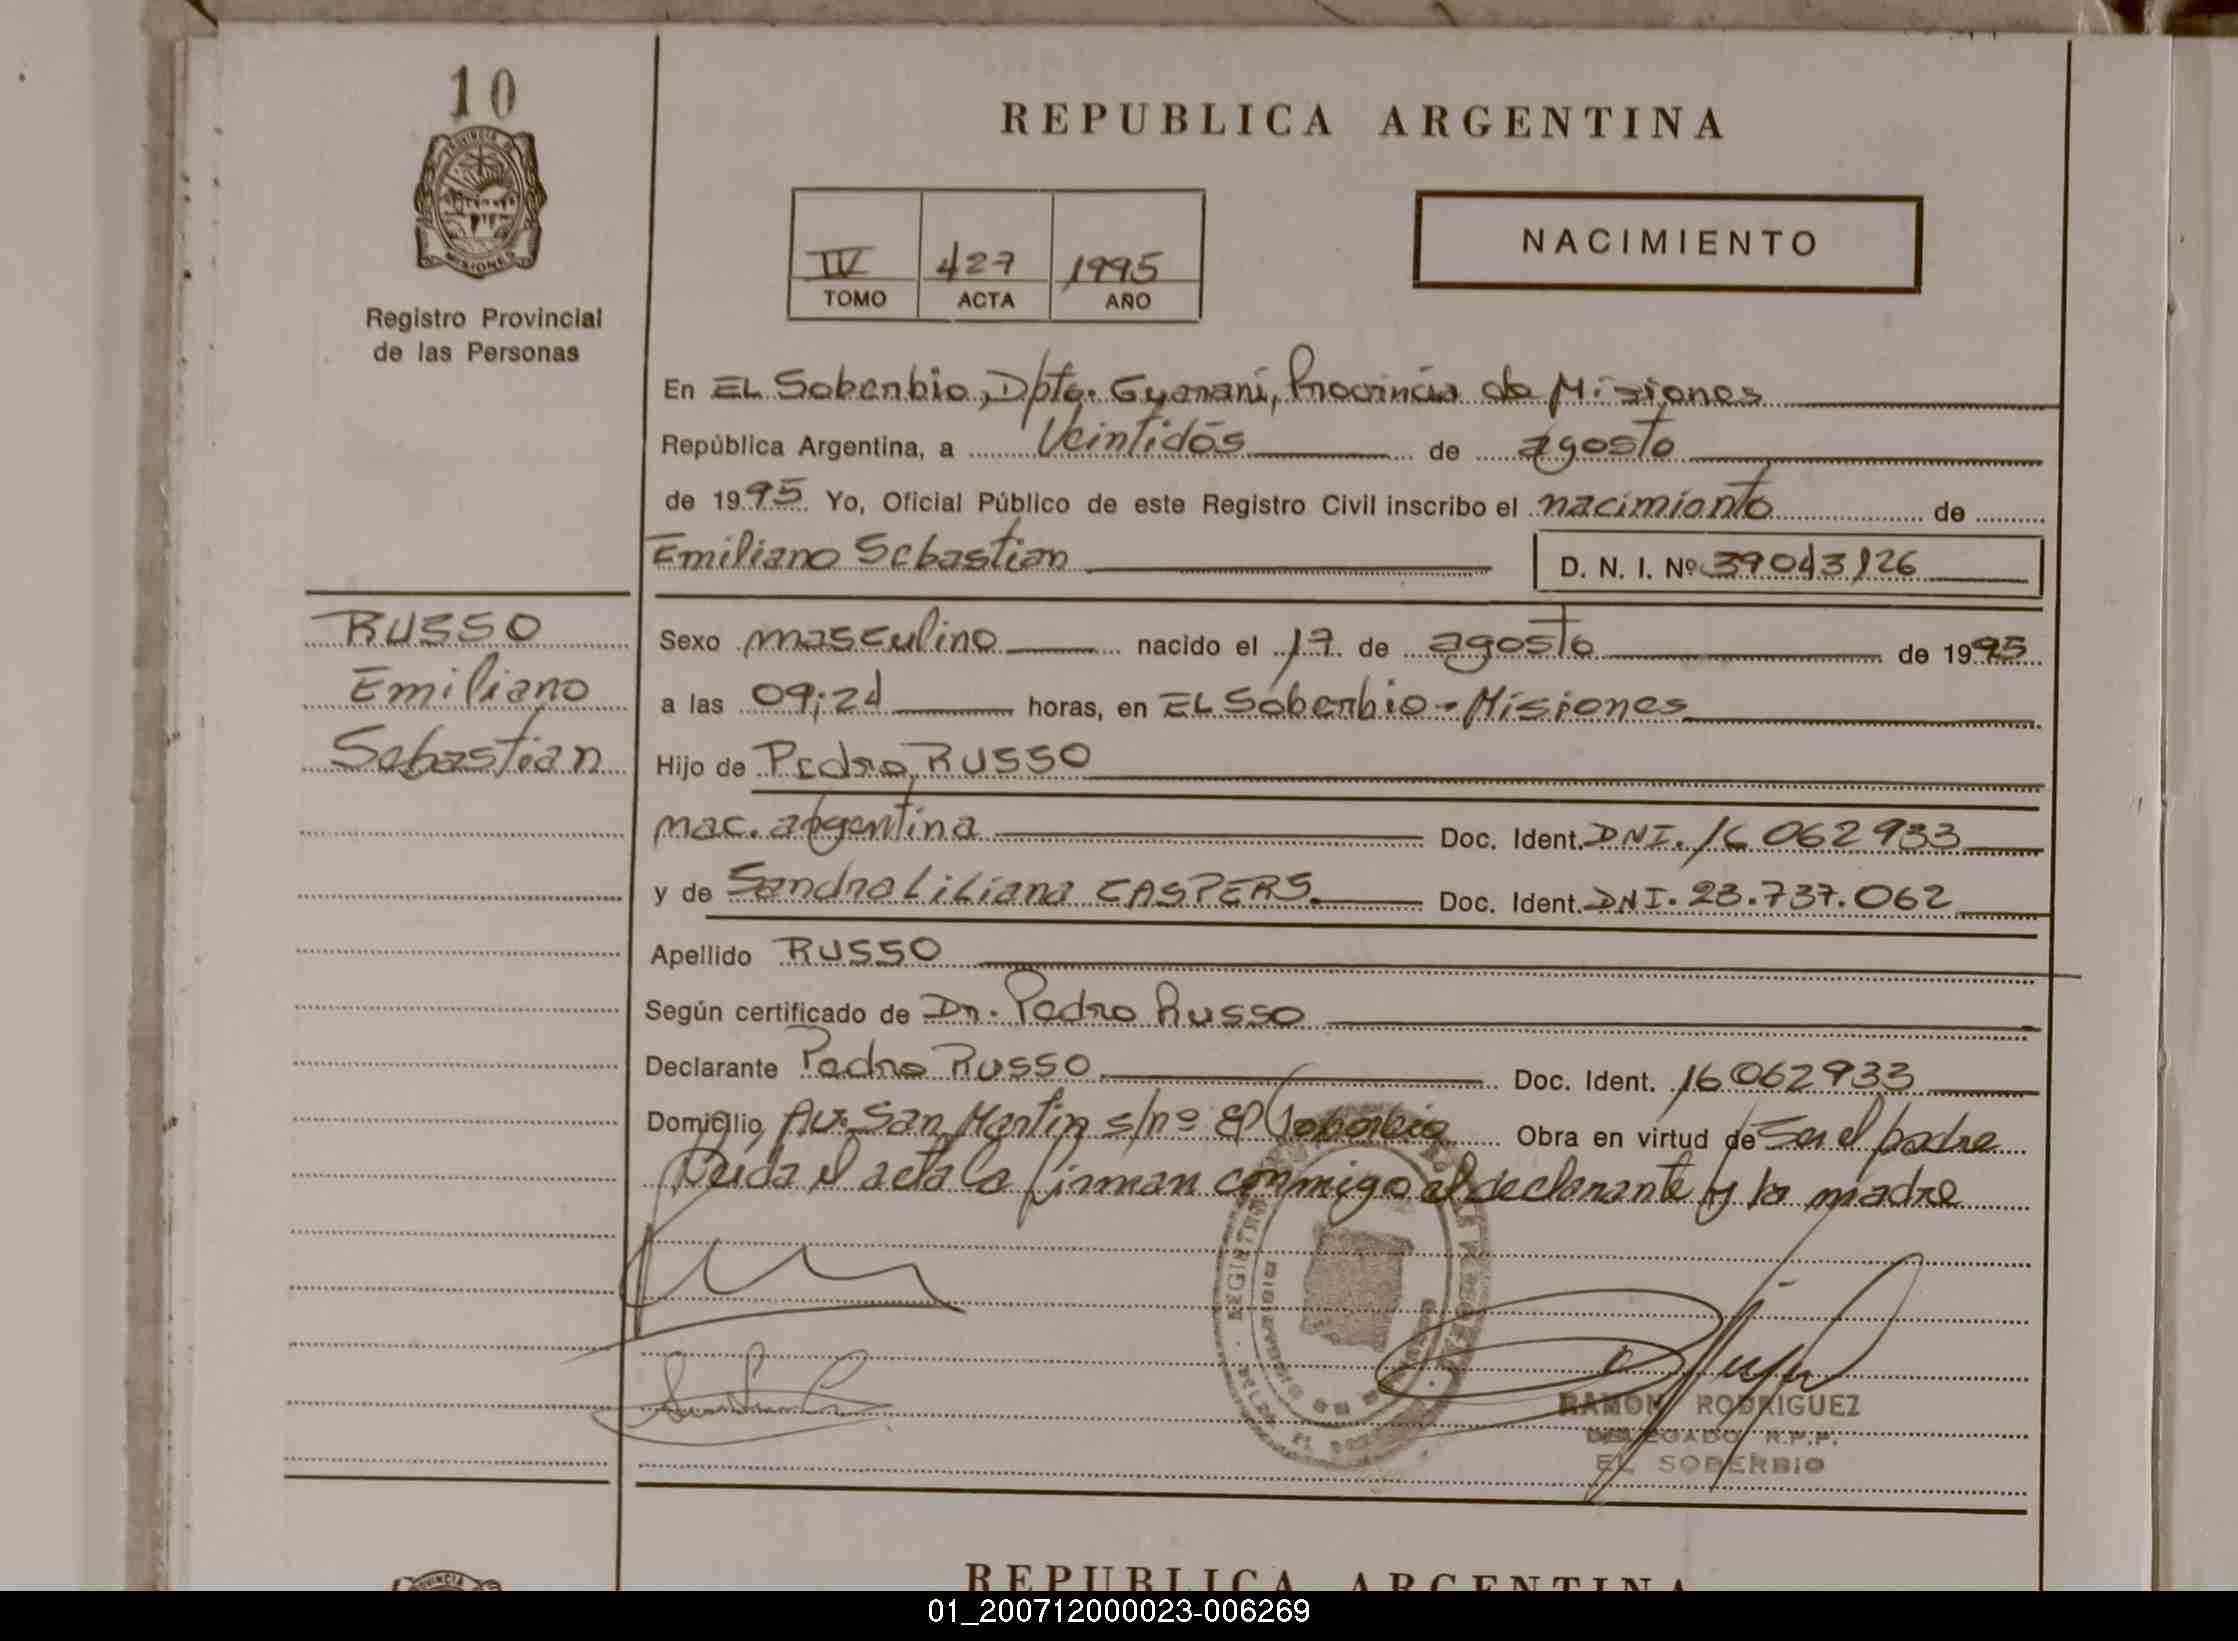 10
PROVINCIA DE
MISIONES
Registro Provincial
de las Personas
REPUBLICA ARGENTINA
IV 427 1995
TOMO ACTA AÑO
NACIMIENTO
En EL Soberbio, Dpto. Guarani, Provincia de Misiones
República Argentina, a Veintidós de agosto
de 1995 Yo, Oficial Público de este Registro Civil inscribo el nacimiento de
Emiliano Sebastian D. N. I. Nº 39043126
RUSSO
Emiliano
Sebastian
Sexo masculino nacido el 17 de agosto de 1995
a las 09;2d horas, en EL Soberbio - Misiones
Hijo de Pedro RUSSO
nac. argentina Doc. Ident. DNI. 16 062933
y de Sandra Liliana CASPERS Doc. Ident. DNI. 23.737.062
Apellido RUSSO
Según certificado de Dr. Pedro Russo
Declarante Pedro Russo Doc. Ident. 16062933
Domicilio Av. San Martin s/nº El Soberbio Obra en virtud de Ser el padre
Leida el acta la firman conmigo el declarante y la madre
RAMON RODRIGUEZ
DELEGADO R.P.P.
EL SOBERBIO
REPUBLICA ARGENTINA
01_200712000023-006269